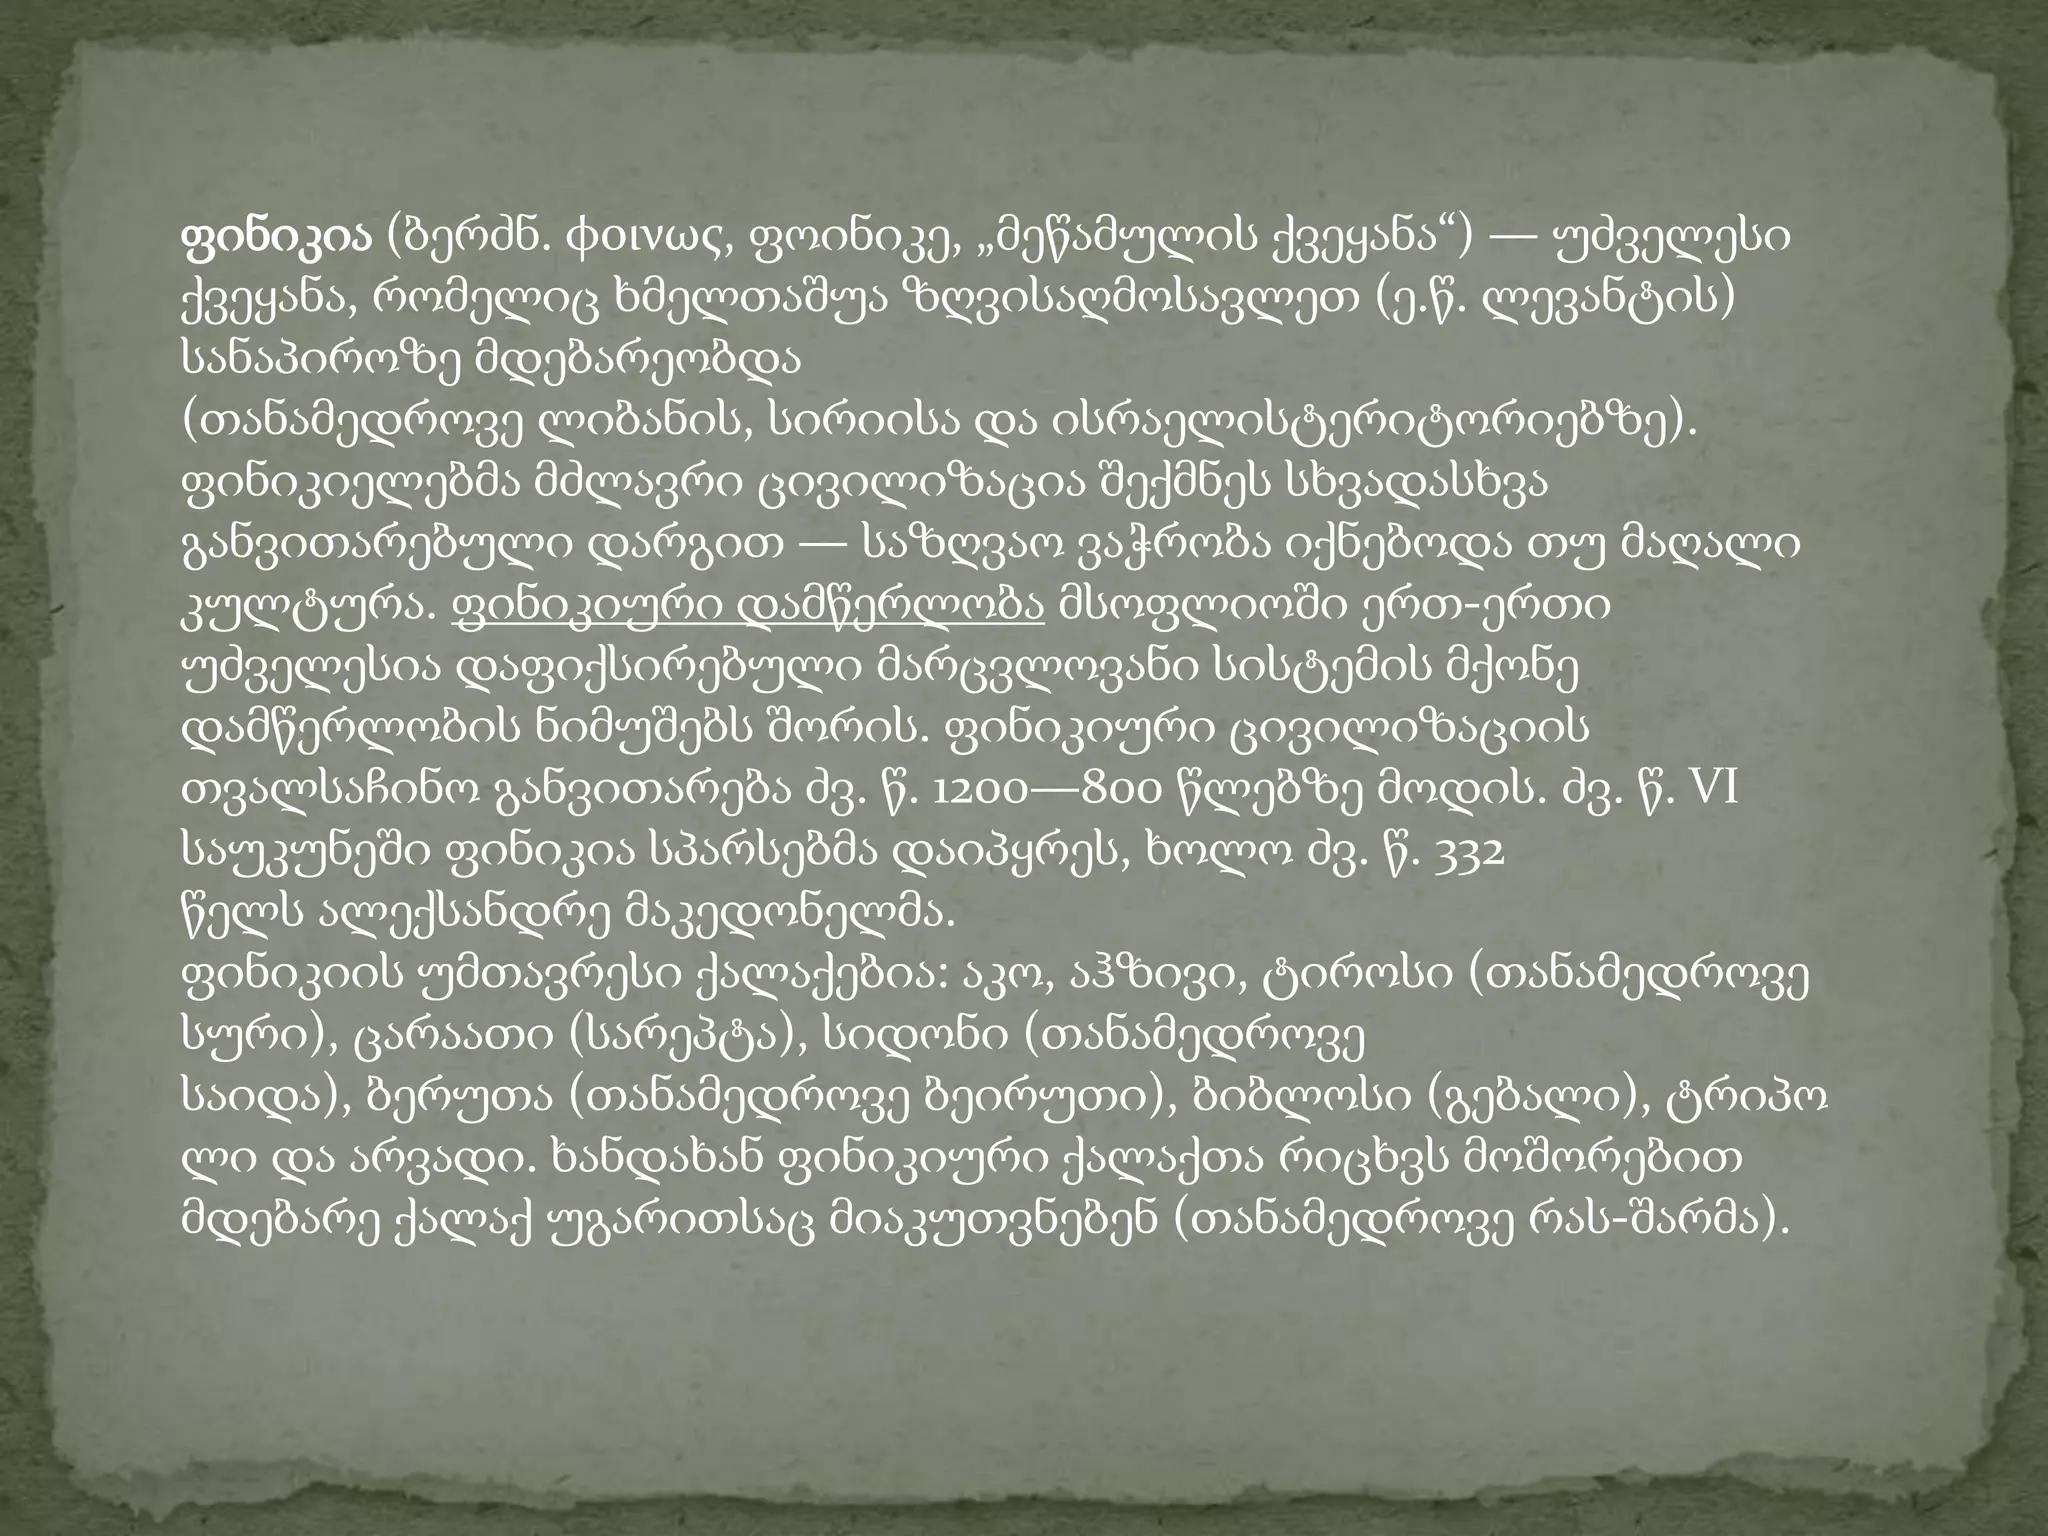 ფინიკია (ბერძნ. φοινως, ფოინიკე, „მეწამულის ქვეყანა“) — უძველესი
ქვეყანა, რომელიც ხმელთაშუა ზღვისაღმოსავლეთ (ე.წ. ლევანტის)
სანაპიროზე მდებარეობდა
(თანამედროვე ლიბანის, სირიისა და ისრაელისტერიტორიებზე).
ფინიკიელებმა მძლავრი ცივილიზაცია შექმნეს სხვადასხვა
განვითარებული დარგით — საზღვაო ვაჭრობა იქნებოდა თუ მაღალი
კულტურა. ფინიკიური დამწერლობა მსოფლიოში ერთ-ერთი
უძველესია დაფიქსირებული მარცვლოვანი სისტემის მქონე
დამწერლობის ნიმუშებს შორის. ფინიკიური ცივილიზაციის
თვალსაჩინო განვითარება ძვ. წ. 1200—800 წლებზე მოდის. ძვ. წ. VI
საუკუნეში ფინიკია სპარსებმა დაიპყრეს, ხოლო ძვ. წ. 332
წელს ალექსანდრე მაკედონელმა.
ფინიკიის უმთავრესი ქალაქებია: აკო, აჰზივი, ტიროსი (თანამედროვე
სური), ცარაათი (სარეპტა), სიდონი (თანამედროვე
საიდა), ბერუთა (თანამედროვე ბეირუთი), ბიბლოსი (გებალი), ტრიპო
ლი და არვადი. ხანდახან ფინიკიური ქალაქთა რიცხვს მოშორებით
მდებარე ქალაქ უგარითსაც მიაკუთვნებენ (თანამედროვე რას-შარმა).